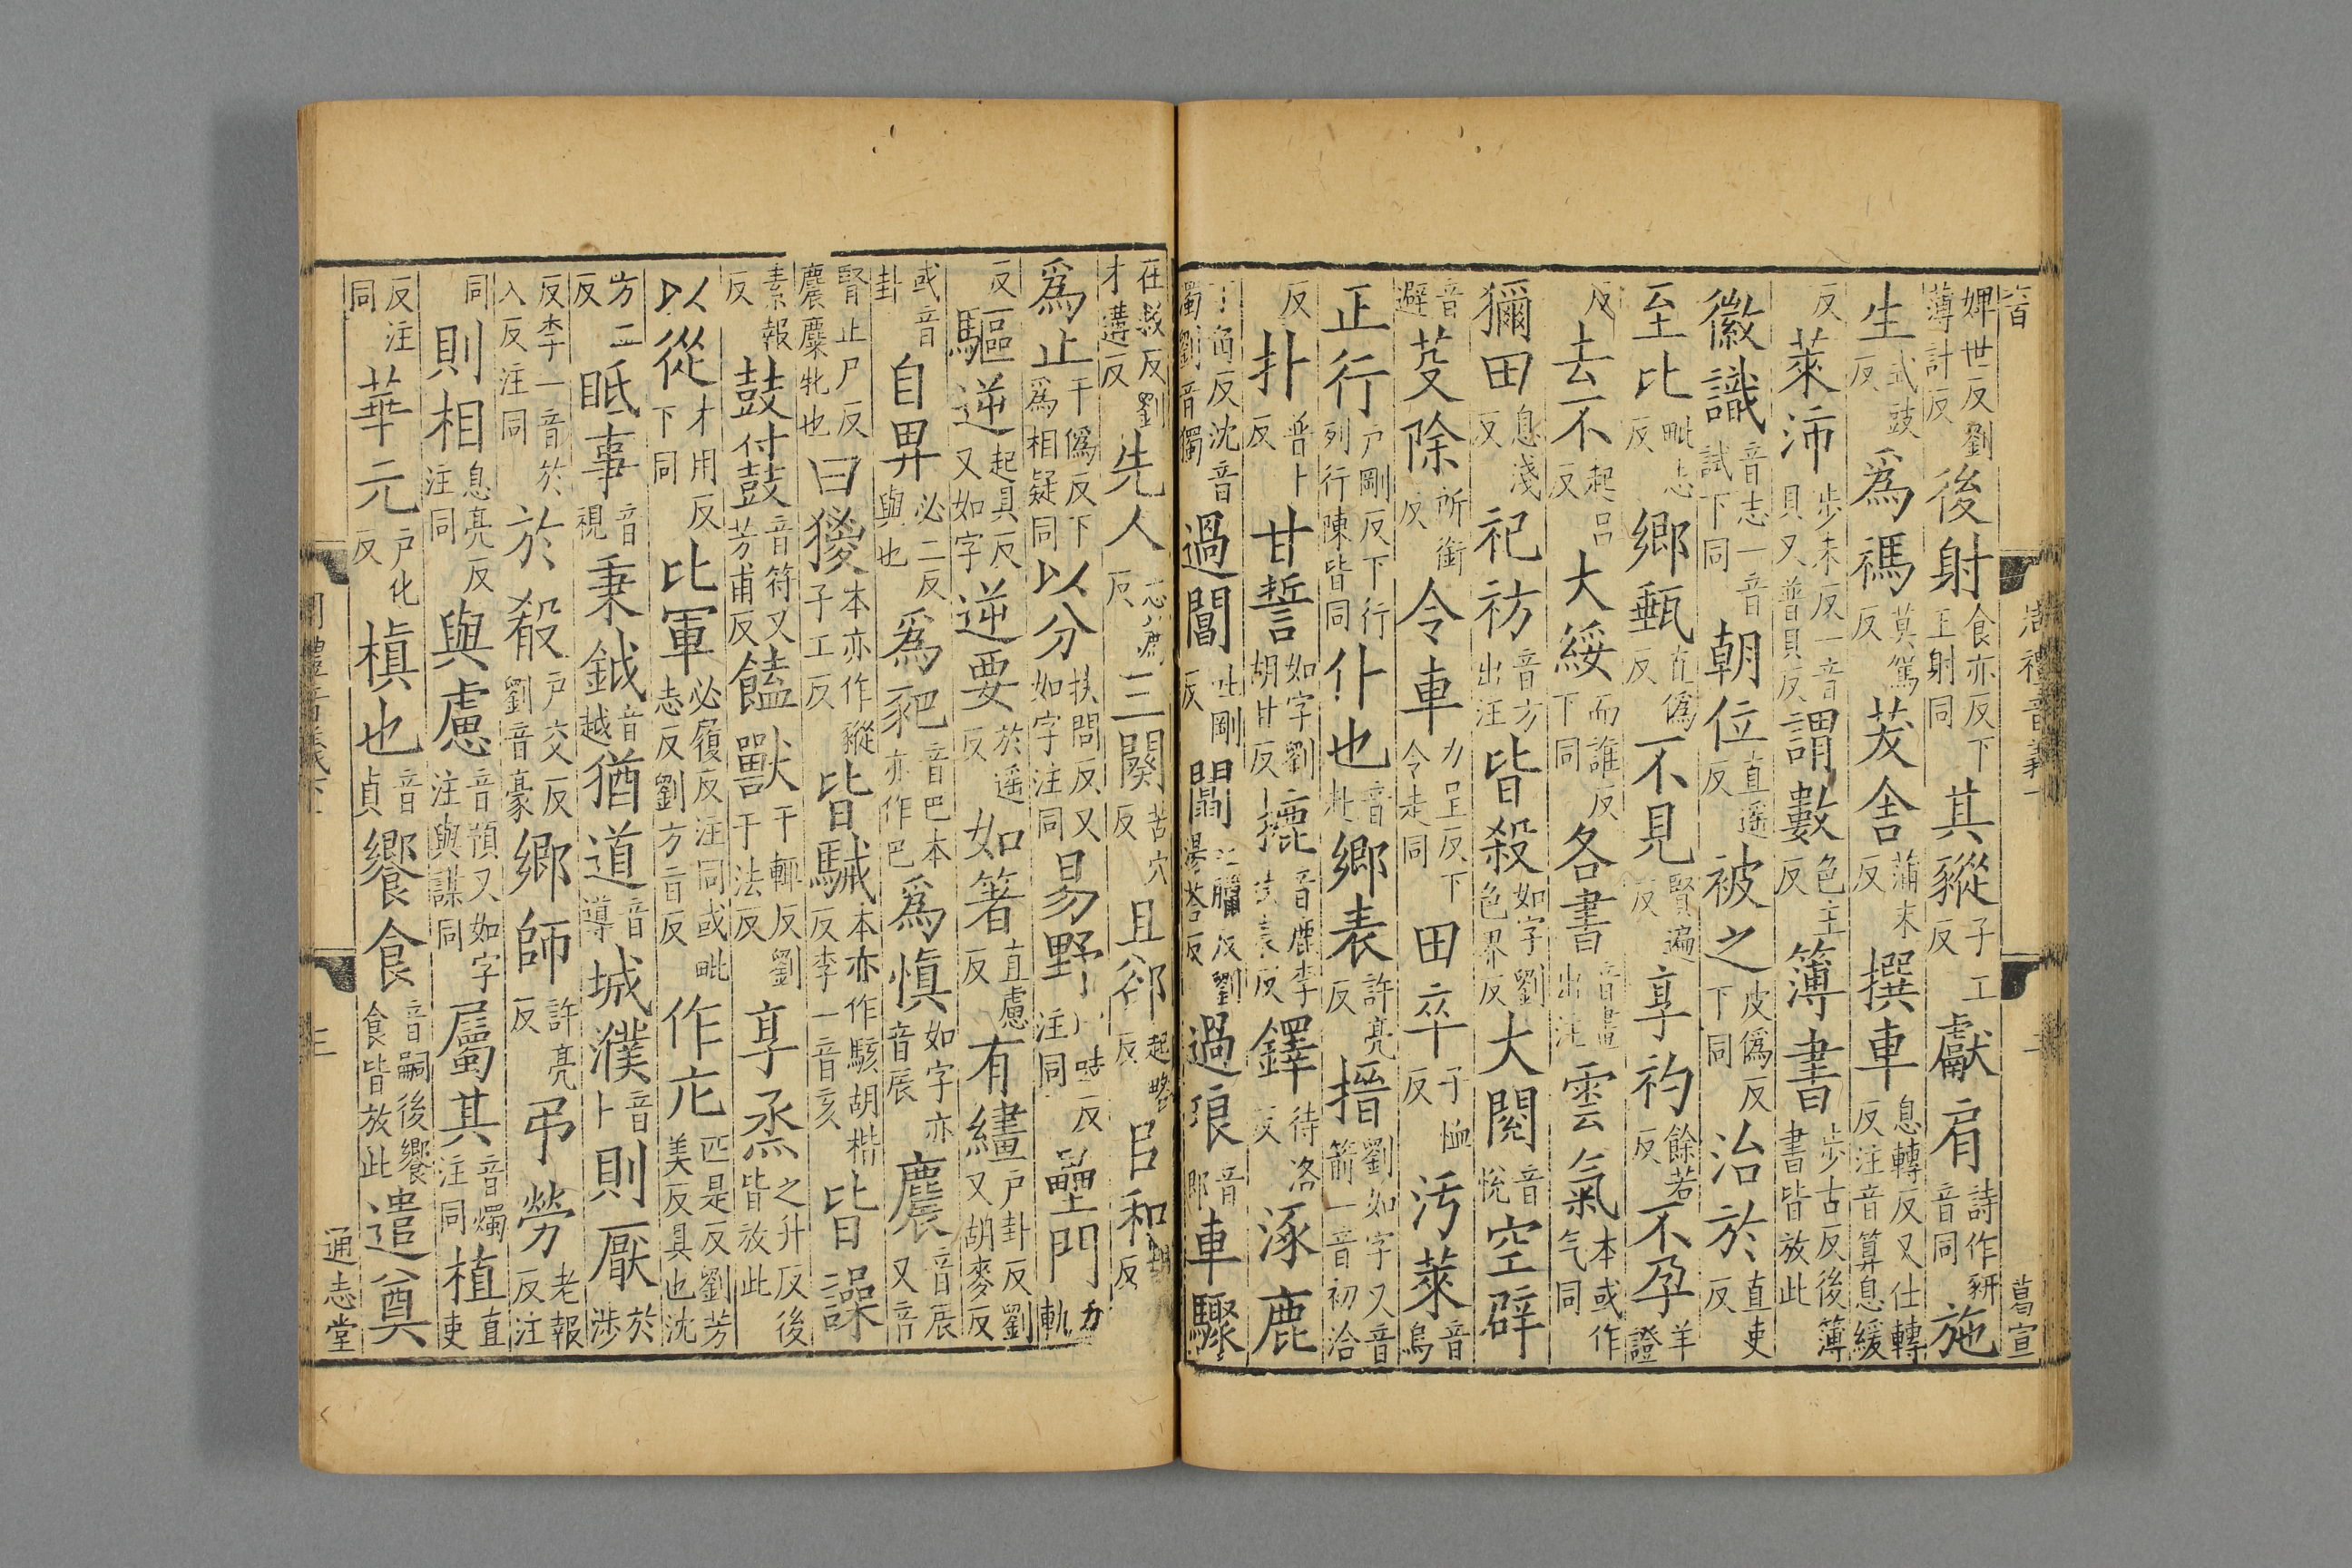 婢世反劉薄計反後射食亦反下王射同其豵子工反獻肩詩作豜音同施
生式豉反爲禡莫駡反茇舍蒲末反撰車息轉反又仕轉反注音算息緩
反萊沛步未反一音貝又普貝反謂數色主反簿書步古反後簿書皆放此
徽識音志一音試下同朝位直遥反被之皮僞反下同治於直吏反
至比毗志反鄉甀直僞反不見賢遍反享礿餘若反不孕羊證
反去不起吕反大綏而誰反下同各書音畫出注雲氣本或作气同
獮田息淺反祀祊音方出注皆殺如字劉色界反大閱音悅空辟
音避芟除所銜反令車力呈反下令走同田卒子恤反汚萊音烏
正行户剛反下行列行陳皆同仆也音赴鄉表許亮反搢劉如字又音箭一音初洽
反扑普卜反甘誓如字劉胡甘反摝音鹿李反鐸待洛反涿鹿
丁角反沈音獨劉音獨過閶吐剛反闒反劉湯荅反過琅音郎車驟
才遘反先人反三闋苦穴反且卻起略反吕和反
爲止于僞反下爲相疑同以分扶問反又如字注同易野注同壘門力軌
反驅逆起具反又如字逆要於遥反如箸直慮反有繣户卦反劉又胡麥反
或音卦自畀必二反與也爲豝音巴本亦作巴爲慎如字亦音辰麎音辰又音
腎止尸反麎麋牝也曰豵本亦作豵子工反皆駴本亦作駭胡楷反李一音亥皆譟
素報反鼓付鼓音符又芳甫反饁獸于輒反劉于法反享烝之升反後皆放此
以從才用反下同比軍必履反注同或毗志反劉方二反作庀匹是反劉芳美反具也沈
方二反眡事音視秉鉞音越猶道音導城濮音卜則厭於涉
反李一音於入反注同於殽户交反劉音豪鄉師許亮反弔勞老報反注
同則相息亮反注同與慮音預又如字注與謀同屬其音燭注同植直吏
反注同華元户化反楨也音貞饗食音嗣後饗食皆放此遣奠
通志堂
葛宣